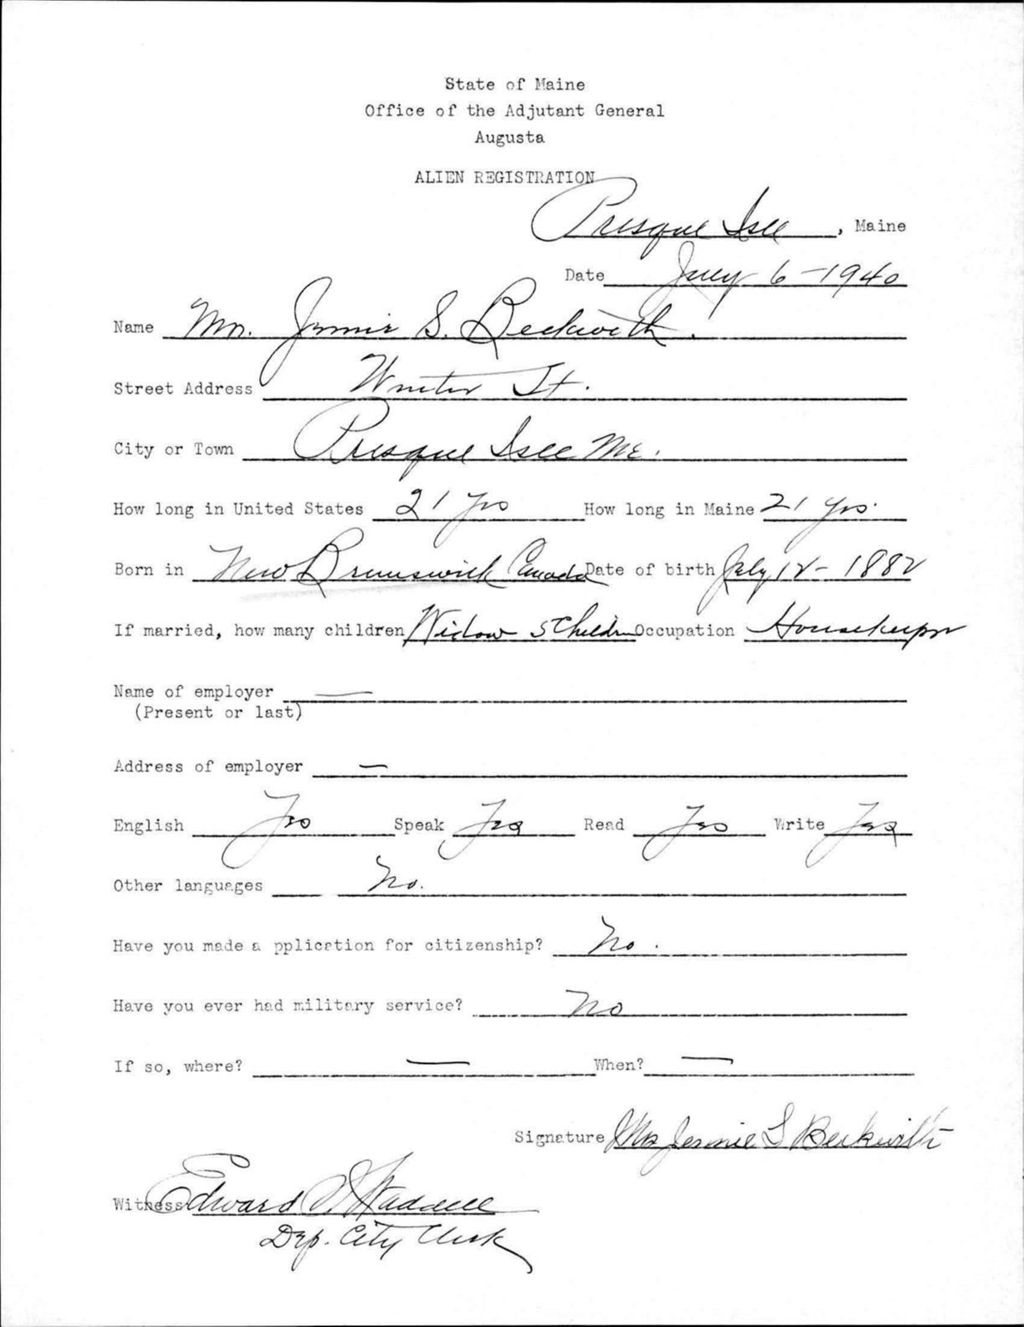 State of Maine
Office of the Adjutant General
Augusta
ALIEN REGISTRATION
Presque Isle, Maine
Date July 6-1940
Name Mrs. Jennie S. Beckwith.
Street Address Winter St.
City or Town Presque Isle Me.
How long in United States 21 yrs How long in Maine 21 yrs.
Born in New Brunswick Canada Date of birth July 12- 1882
If married, how many children Widow 5 Children Occupation Housekeeper
Name of employer —
(Present or last)
Address of employer —
English Yes Speak Yes Read Yes Write Yes
Other languages No.
Have you made a pplication for citizenship? No.
Have you ever had military service? No
If so, where? — When? —
Signature Mrs Jennie S Beckwith
Witness Edward Waddell
Dep. City Clerk